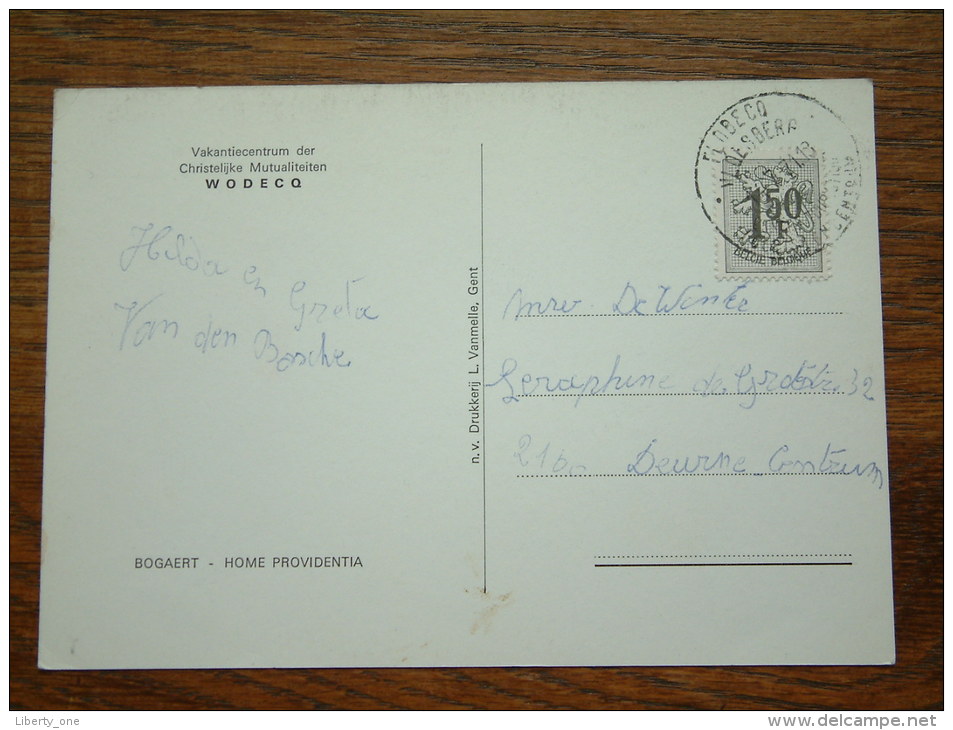 Vakantiecentrum der
Christelijke Mutualiteiten
WODECQ
Hilda en Greta
Van den Bosche
BOGAERT - HOME PROVIDENTIA
n.v. Drukkerij L. Vanmelle, Gent
FLOBECQ
1,50 F
BELGIE BELGIQUE
mrv. De Winte
Seraphine de Grote 32
Deurne Centrum
Liberty_one
www.delcampe.net